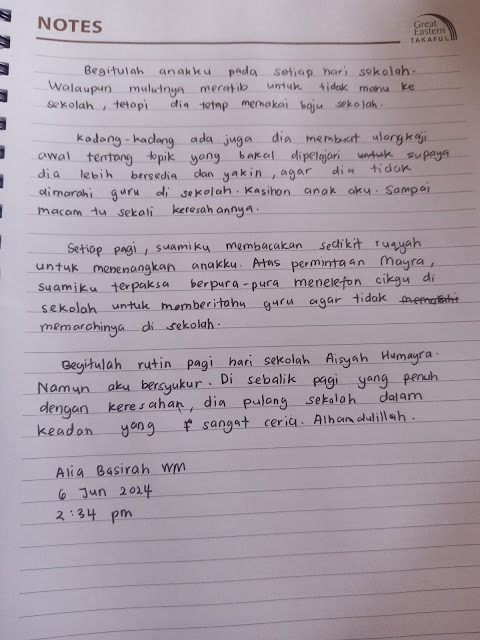 NOTES
Great
Eastern
TAKAFUL
Begitulah anakku pada setiap hari sekolah.
Walaupun mulutnya meratib untuk tidak mahu ke
sekolah, tetapi dia tetap memakai baju sekolah.
Kadang-kadang ada juga dia membuat ulangkaji
awal tentang topik yang bakal dipelajari untuk supaya
dia lebih bersedia dan yakin, agar dia tidak
dimarahi guru di sekolah. Kasihan anak aku. Sampai
macam tu sekali keresahannya.
Setiap pagi, suamiku membacakan sedikit ruqyah
untuk menenangkan anakku. Atas permintaan Mayra,
suamiku terpaksa berpura-pura menelefon cikgu di
sekolah untuk memberitahu guru agar tidak memarahi
memarahinya di sekolah.
Begitulah rutin pagi hari sekolah Aisyah Humayra.
Namun aku bersyukur. Di sebalik pagi yang penuh
dengan keresahan, dia pulang sekolah dalam
keadan yang sangat ceria. Alhamdulillah.
Alia Basirah WM
6 Jun 2024
2:34 pm